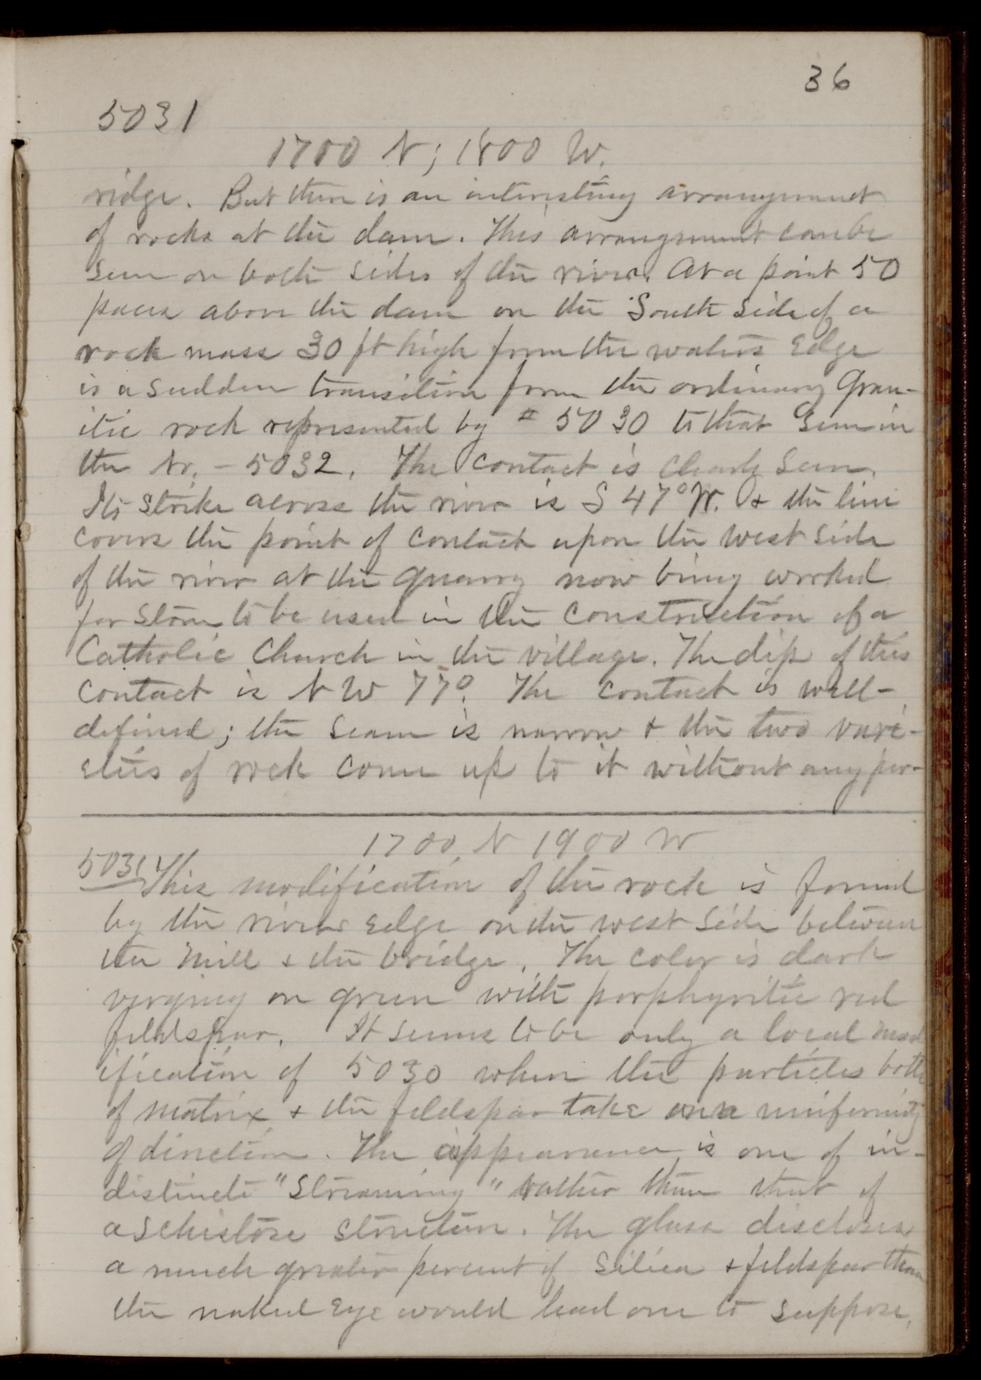 36
5031
1700 N; 1800 W.
ridge. But there is an interesting arrangement
of rocks at the dam. This arrangement can be
seen on both sides of the river. At a point 50
paces above the dam on the South side of a
rock mass 30 ft high from the waters edge
is a sudden transition from the ordinary Gran-
itic rock represented by # 5030 to that seen in
the No. - 5032. The contact is clearly seen.
Its strike across the river is S 47° W. & the line
covers the point of contact upon the west side
of the river at the quarry now being worked
for stone to be used in the construction of a
Catholic Church in the village. The dip of this
contact is N W 77°. The contact is well-
defined; the seam is narrow & the two vari-
eties of rock come up to it without any per-
1700 N 1900 W
5031 This modification of the rock is found
by the rivers edge on the west side between
the mill & the bridge. The color is dark
verging on green with porphyritic red
feldspar. It seems to be only a local mod
ification of 5030 when the particles both
of matrix & the feldspar take on a uniformity
of direction. The appearance is one of in-
distincte "Streaming" rather than that of
a schistose structure. The glass discloses
a much greater percent of silica & feldspar than
the naked eye would lead one to suppose.